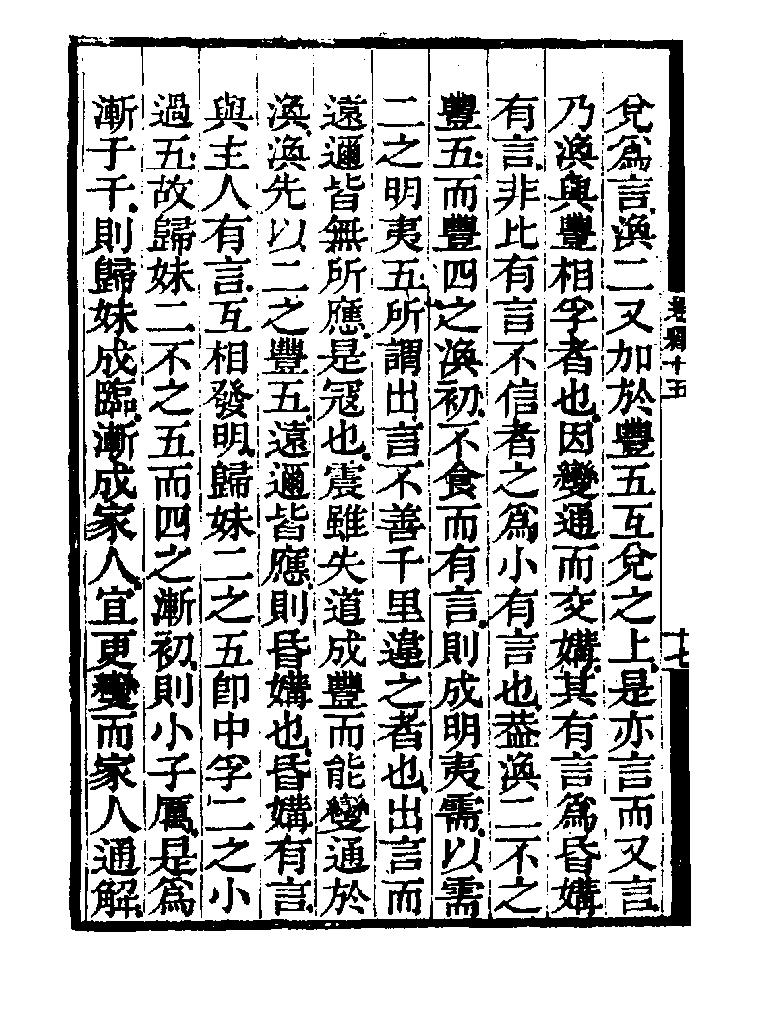 兌爲言渙二又加於豐五互兌之上是亦言而又言
乃渙與豐相孚者也因變通而交媾其有言爲昏媾
有言非比有言不信者之爲小有言也葢渙二不之
豐五而豐四之渙初不食而有言則成明夷需以需
二之明夷五所謂出言不善千里違之者也出言而
遠邇皆無所應是冦也震雖失道成豐而能變通於
渙渙先以二之豐五遠邇皆應則昏媾也昏媾有言
與主人有言互相發明歸妹二之五卽中孚二之小
過五故歸妹二不之五而四之漸初則小子厲是爲
漸于干則歸妹成臨漸成家人宜更變而家人通解
十七